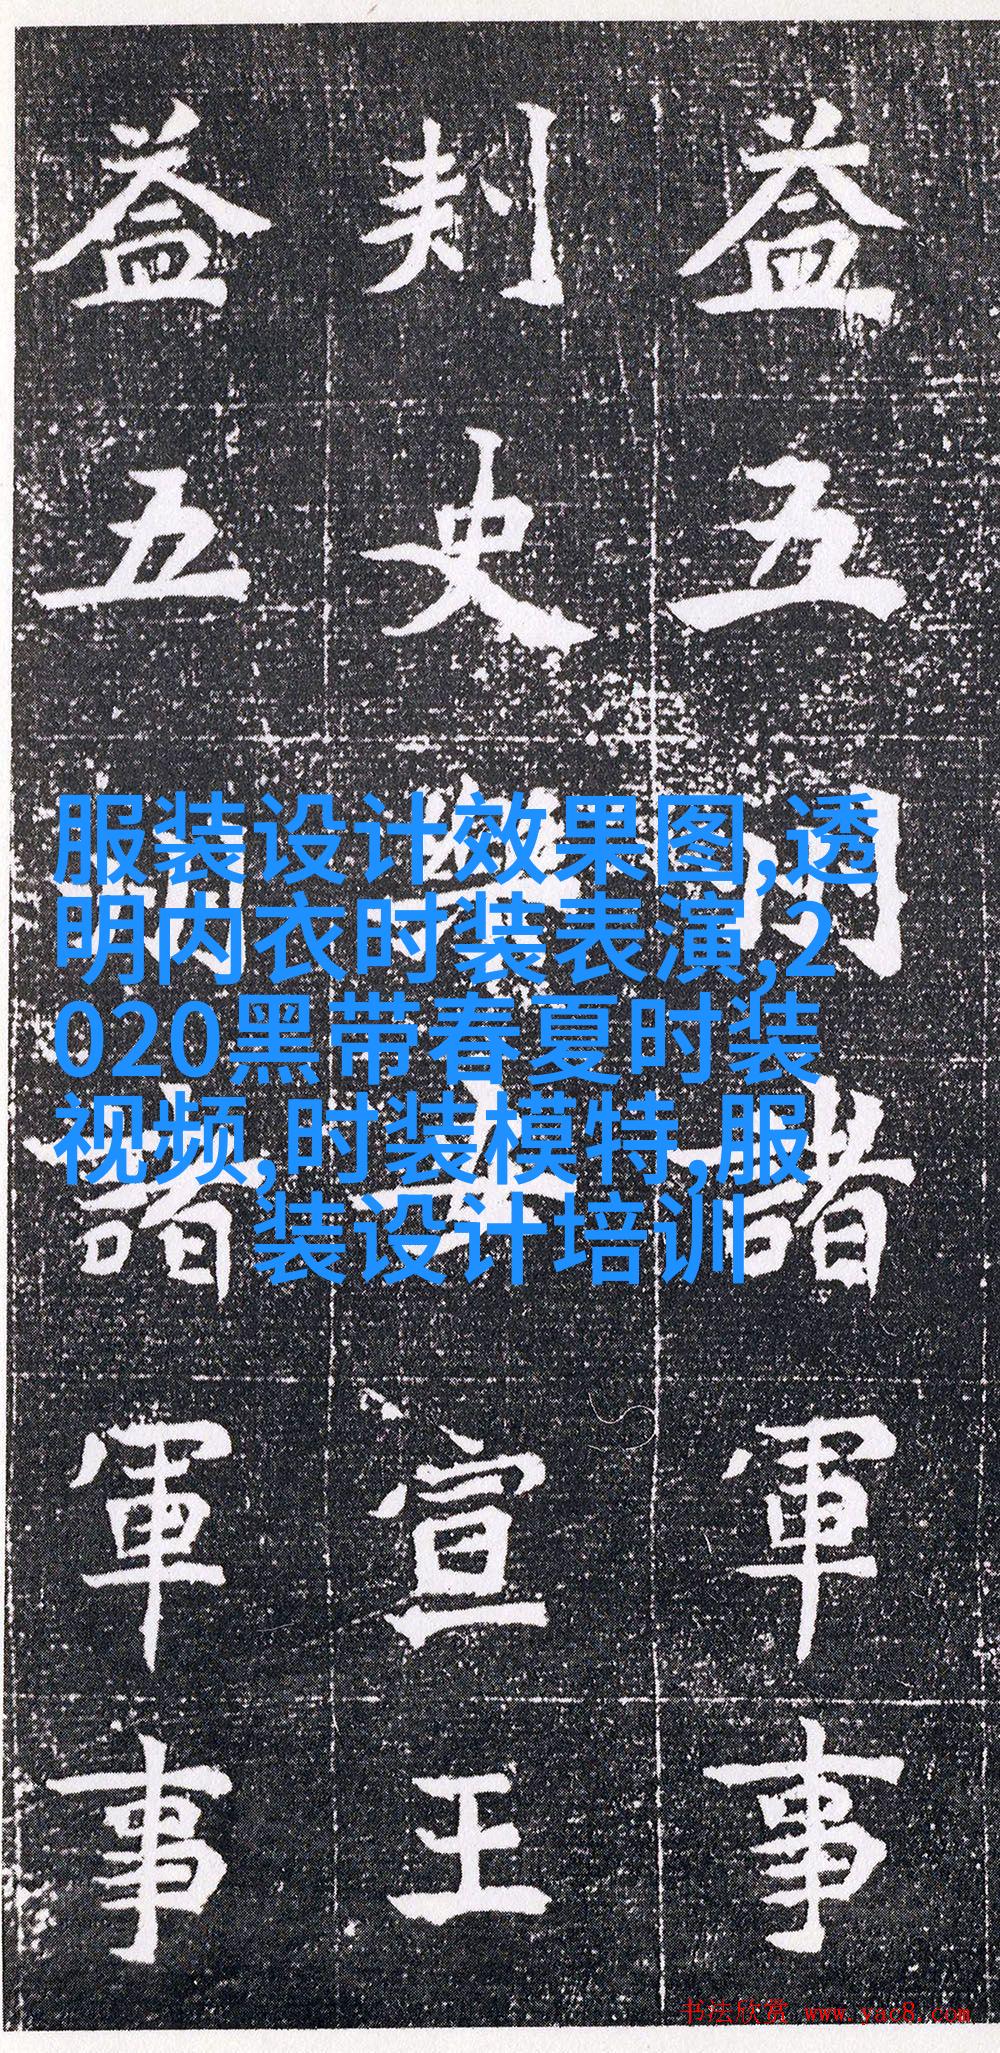 益五州諸軍事
刾史樂安宣王
益五州諸軍事
服装设计效果图,透
明内衣时装表演,2
020黑带春夏时装
视频,时装模特,服
装设计培训
书法欣赏 www.yac8.com